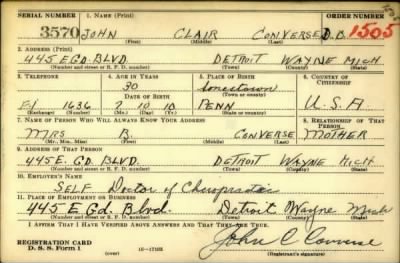 SERIAL NUMBER 1. NAME (Print) ORDER NUMBER
3570 JOHN CLAIR CONVERSE D.C. 1505
(First) (Middle) (Last)
2. ADDRESS (Print)
445 E GD. BLVD DETROIT WAYNE MICH
(Number and street or R. F. D. number) (Town) (County) (State)
3. TELEPHONE 4. AGE IN YEARS 5. PLACE OF BIRTH 6. COUNTRY OF CITIZENSHIP
30
DATE OF BIRTH (Town or county)
1636 2 10 10 PENN U.S.A.
(Exchange) (Number) (Mo.) (Day) (Yr.) (State or country)
7. NAME OF PERSON WHO WILL ALWAYS KNOW YOUR ADDRESS 8. RELATIONSHIP OF THAT PERSON
MRS B. CONVERSE MOTHER
(Mr., Mrs., Miss) (First) (Middle) (Last)
9. ADDRESS OF THAT PERSON
445 E. GD. BLVD. DETROIT WAYNE MICH
(Number and street or R. F. D. number) (Town) (County) (State)
10. EMPLOYER'S NAME
SELF Doctor of Chiropractic
11. PLACE OF EMPLOYMENT OR BUSINESS
445 E Gd. Blvd. Detroit Wayne Mich
(Number and street or R. F. D. number) (Town) (County) (State)
I AFFIRM THAT I HAVE VERIFIED ABOVE ANSWERS AND THAT THEY ARE TRUE.
REGISTRATION CARD
D. S. S. Form 1 (over) John C Converse
(Registrant's signature)